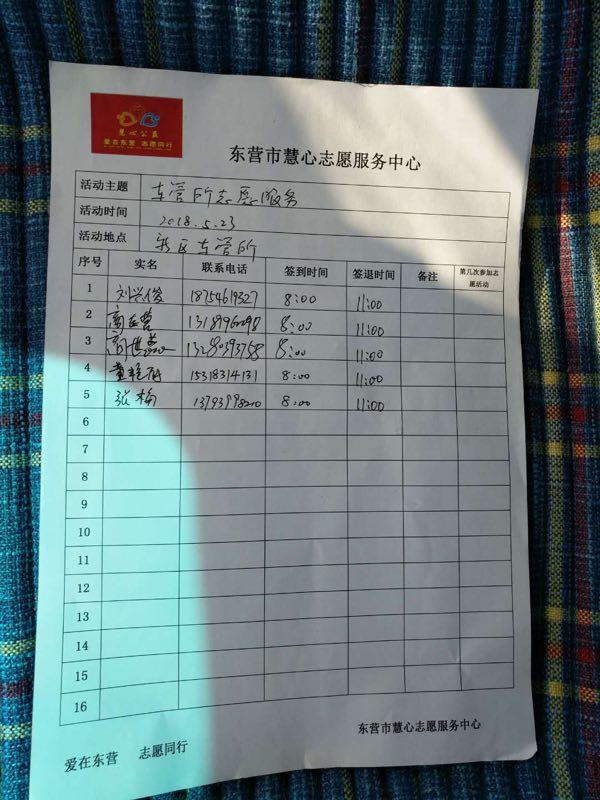 慧心公益
爱在东营 志愿同行
东营市慧心志愿服务中心
活动主题 车管所志愿服务
活动时间 2018.5.23
活动地点 东区车管所
序号 实名 联系电话 签到时间 签退时间 备注 第几次参加志愿活动
1 刘兴俊 18754619327 8:00 11:00
2 8:00 11:00
3 8:00 11:00
4 15318314131 8:00 11:00
5 张梅 13793998210 8:00 11:00
6
7
8
9
10
11
12
13
14
15
16
爱在东营 志愿同行 东营市慧心志愿服务中心